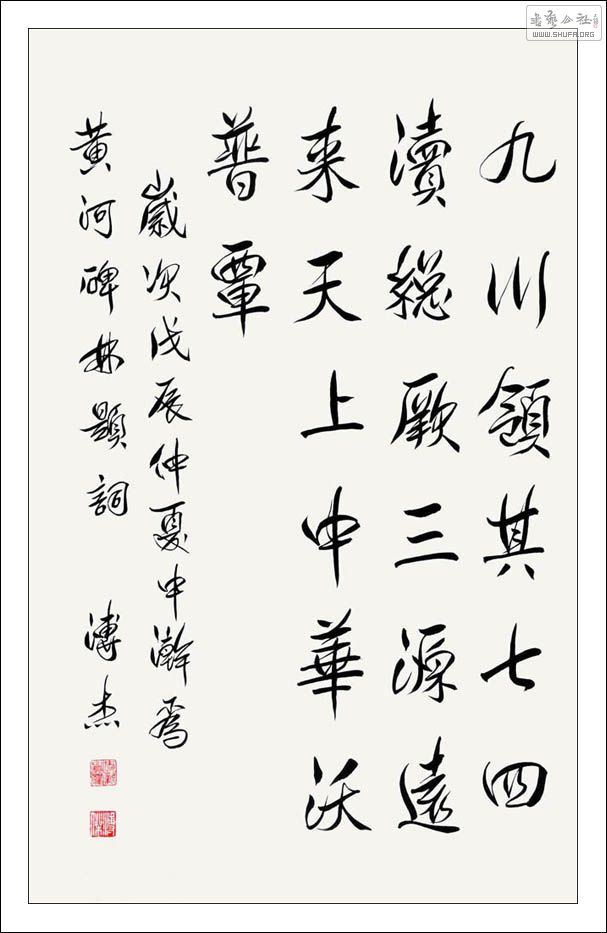 九川領其七四
瀆總厥三源遠
来天上中華沃
普覃
歲次戊辰仲夏中澣為
黄河碑林題詞
溥杰
WWW.SHUFA.ORG